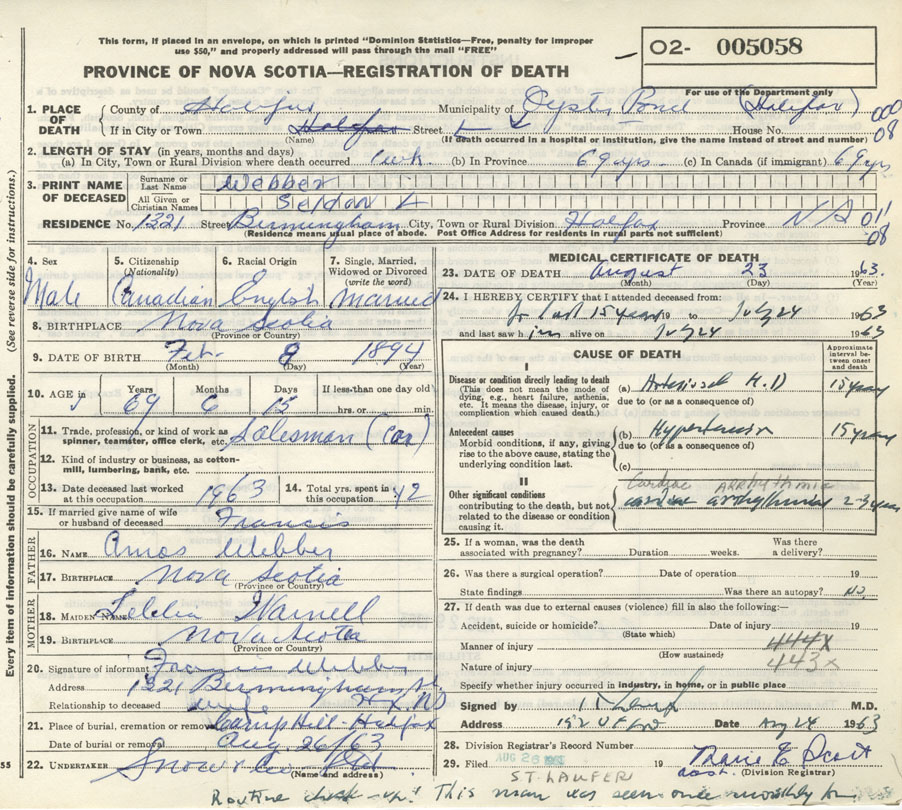 This form, if placed in an envelope, on which is printed "Dominion Statistics—Free, penalty for improper
use $50," and properly addressed will pass through the mail "FREE"
O2- 005058
PROVINCE OF NOVA SCOTIA—REGISTRATION OF DEATH
For use of the Department only
1. PLACE OF DEATH County of Halifax Municipality of Oyster Pond (Halifax) 000
If in City or Town Halifax Street House No. 08
(Name) (If death occurred in a hospital or institution, give the name instead of street and number)
2. LENGTH OF STAY (in years, months and days)
(a) In City, Town or Rural Division where death occurred 1 wk. (b) In Province 69 yrs. (c) In Canada (if immigrant) 69 yrs
3. PRINT NAME OF DECEASED Surname or Last Name Webber
All Given or Christian Names Seldon L
RESIDENCE No. 1321 Street Birmingham City, Town or Rural Division Halifax Province NS 011
(Residence means usual place of abode. Post Office Address for residents in rural parts not sufficient) 08
4. Sex Male
5. Citizenship (Nationality) Canadian
6. Racial Origin English
7. Single, Married, Widowed or Divorced (write the word) Married
8. BIRTHPLACE Nova Scotia
(Province or Country)
9. DATE OF BIRTH Feb. 8 1894
(Month) (Day) (Year)
10. AGE in Years 69 Months 6 Days 15 If less than one day old hrs. or min.
OCCUPATION
11. Trade, profession, or kind of work as spinner, teamster, office clerk, etc. Salesman (Car)
12. Kind of industry or business, as cotton-mill, lumbering, bank, etc.
13. Date deceased last worked at this occupation 1963
14. Total yrs. spent in this occupation 42
15. If married give name of wife or husband of deceased Francis
FATHER
16. NAME Amos Webber
17. BIRTHPLACE Nova Scotia
(Province or Country)
MOTHER
18. MAIDEN NAME Warnell
19. BIRTHPLACE Nova Scotia
(Province or Country)
20. Signature of informant Francis Webber
Address 1321 Birmingham St.
Relationship to deceased wife Hfx. NS
21. Place of burial, cremation or removal Camp Hill-Halifax
Date of burial or removal Aug. 26/63
22. UNDERTAKER Snow & Co
(Name and address)
MEDICAL CERTIFICATE OF DEATH
23. DATE OF DEATH August 23 1963.
(Month) (Day) (Year)
24. I HEREBY CERTIFY that I attended deceased from:
for last 15 years 19 to July 24 1963
and last saw him alive on July 24 1963
CAUSE OF DEATH
Approximate interval between onset and death
I
Disease or condition directly leading to death
(This does not mean the mode of dying, e.g., heart failure, asthenia, etc. It means the disease, injury, or complication which caused death.)
(a) H.D 15 years
due to (or as a consequence of)
Antecedent causes
Morbid conditions, if any, giving rise to the above cause, stating the underlying condition last.
(b) Hypertension 15 years
due to (or as a consequence of)
(c)
II
Other significant conditions contributing to the death, but not related to the disease or condition causing it.
Cardiac ARRHYTHMIA
cardiac arrhythmia 2-3 years
25. If a woman, was the death associated with pregnancy? Duration weeks. Was there a delivery?
26. Was there a surgical operation? Date of operation 19
State findings Was there an autopsy? No.
27. If death was due to external causes (violence) fill in also the following:—
Accident, suicide or homicide? Date of injury 19
(State which)
Manner of injury 444X
(How sustained) 443X
Nature of injury
Specify whether injury occurred in industry, in home, or in public place
Signed by M.D.
Address Date Aug 24 1963
28. Division Registrar's Record Number
29. Filed AUG 26 1963 19 Marie E Scott
asst. (Division Registrar)
S.T. LAUFER
Routine check-up! This man was seen once monthly
(See reverse side for instructions.)
Every item of information should be carefully supplied.
55